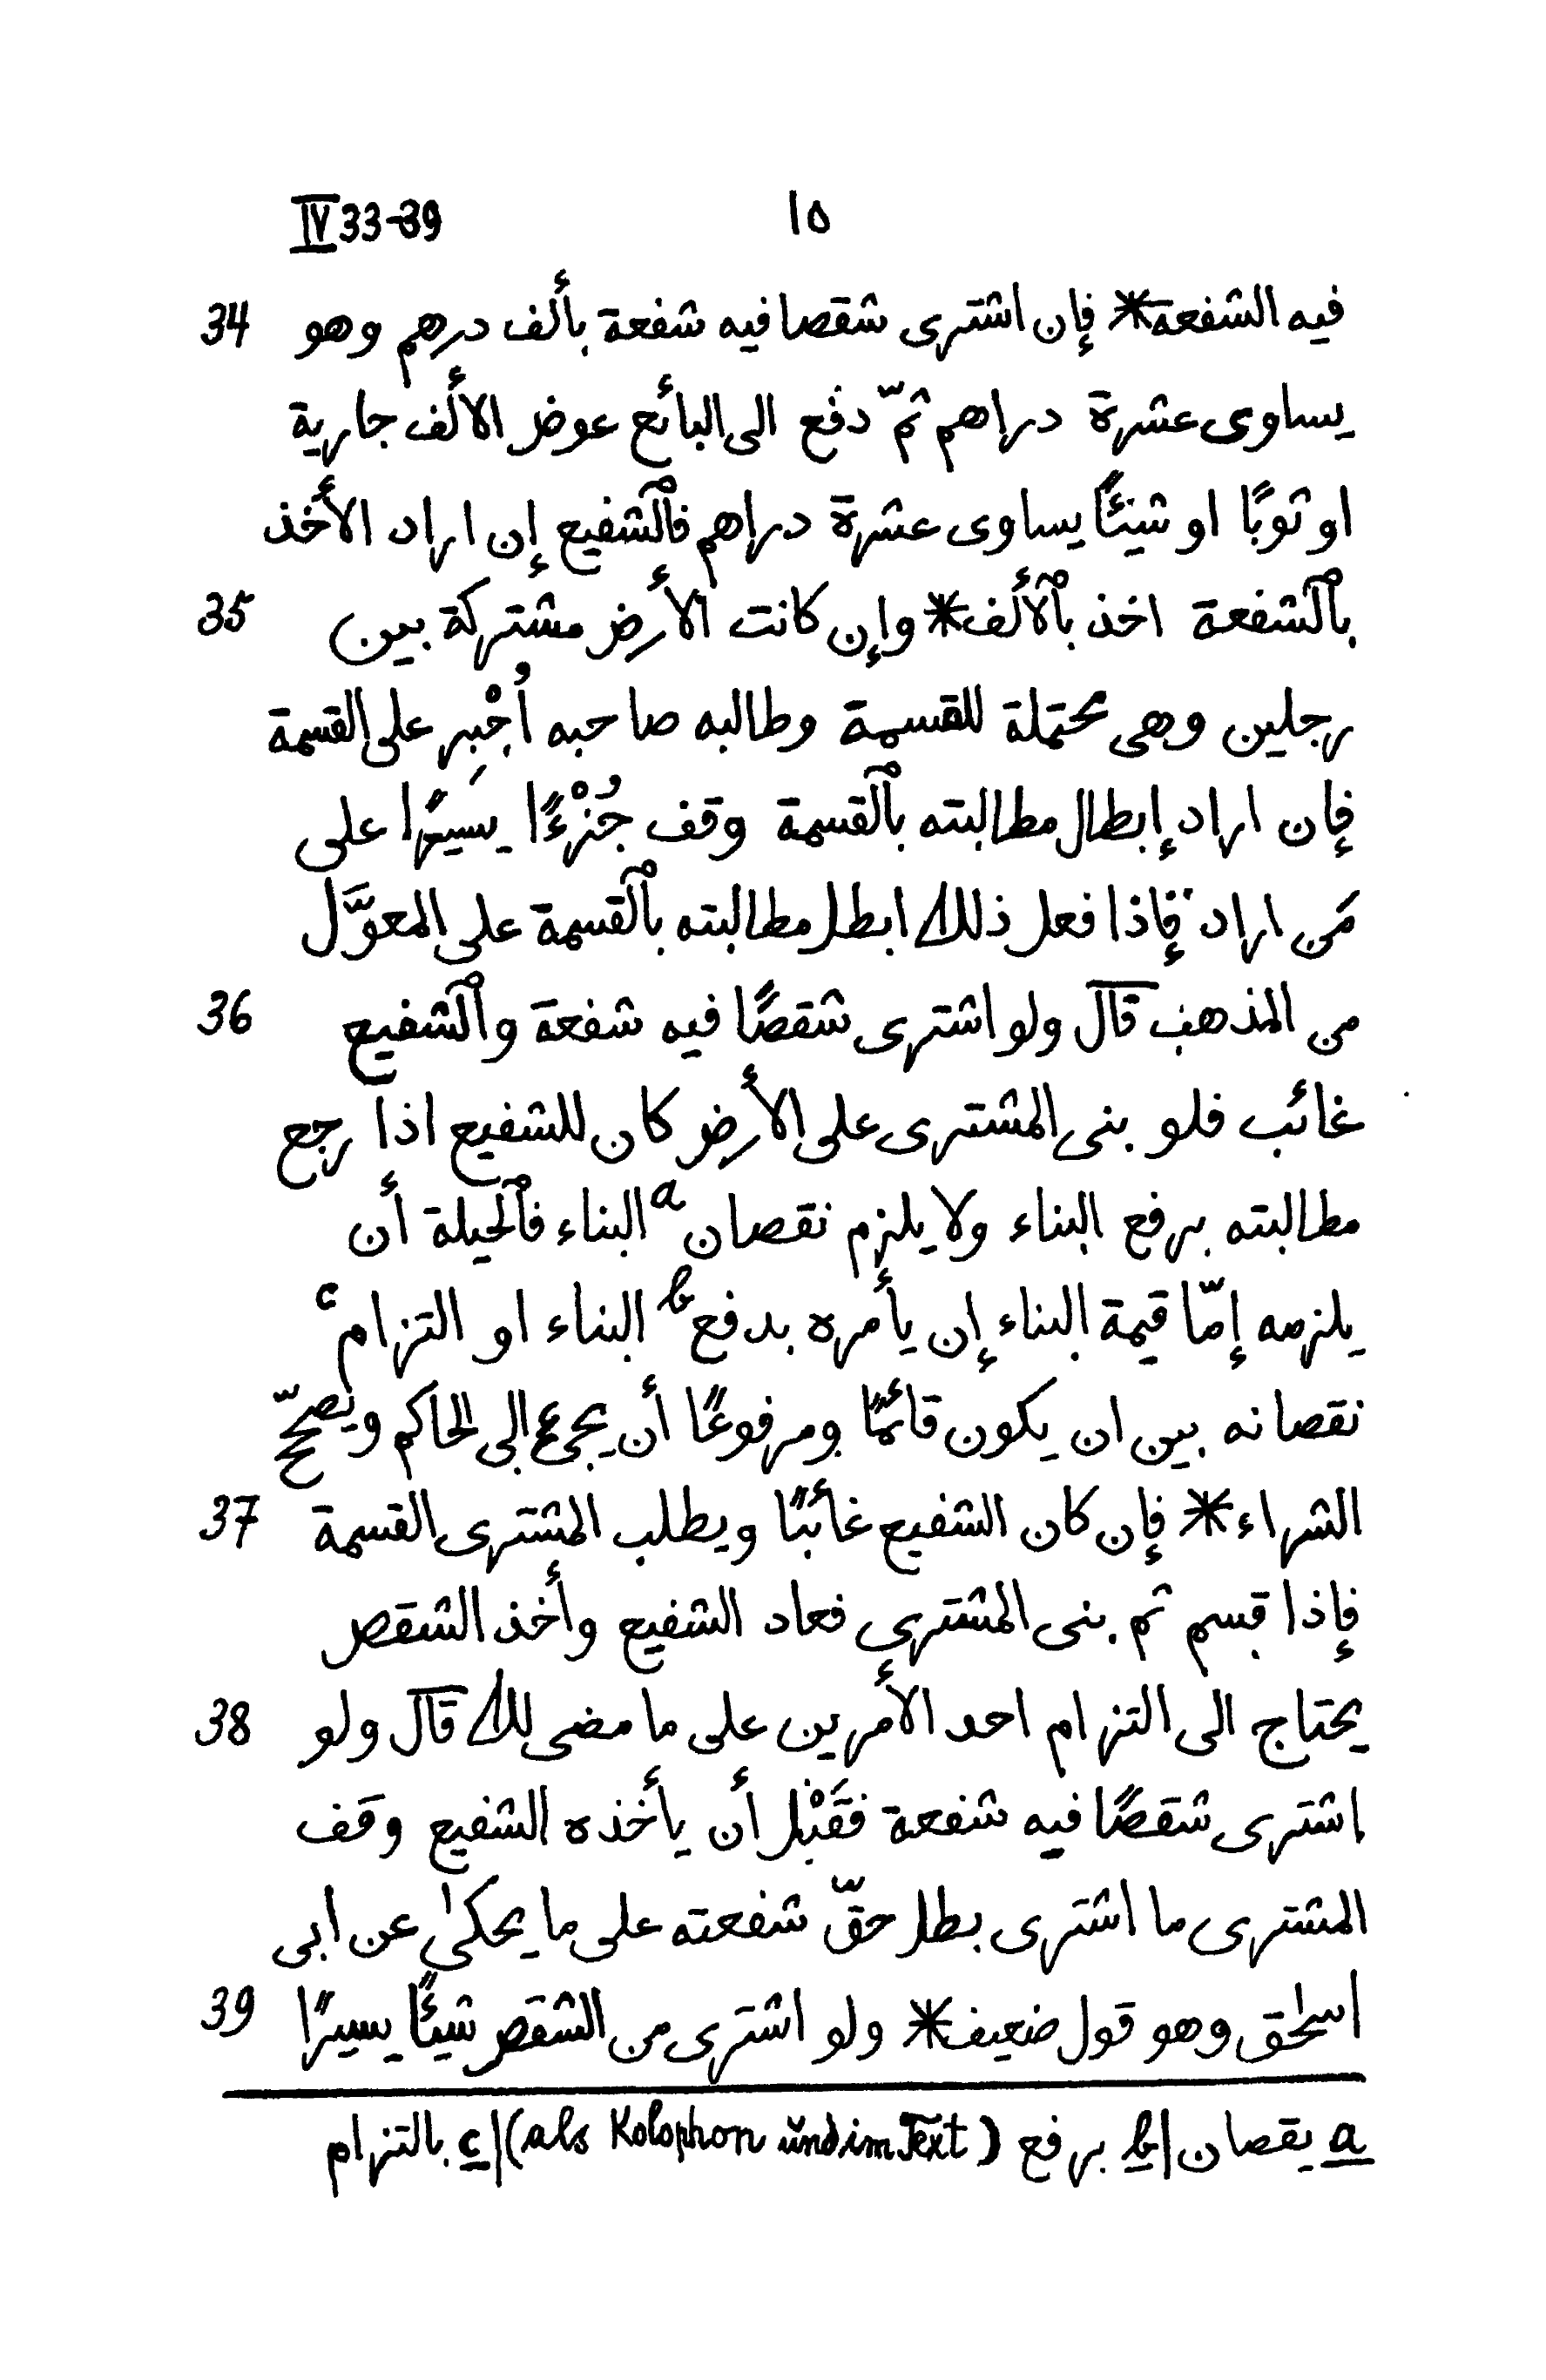 IV 33-39 ١٥
فيه الشفعة* فإن اشترى شقصا فيه شفعة بألف درهم وهو 34
يساوى عشرة دراهم ثمّ دفع الى البائع عوض الألف جارية
او ثوبًا او شيئًا يساوى عشرة دراهم فٱلشفيع إن اراد الأخذ
بٱلشفعة اخذ بٱلألف* وإن كانت الأرض مشتركة بين 35
رجلين وهى محتملة للقسمة وطالبه صاحبه أُجْبِر على القسمة
فإن اراد إبطال مطالبته بٱلقسمة وقف جُزْءًا يسيرًا على
مَن اراد فإذا فعل ذلك ابطل مطالبته بٱلقسمة على المعوَّل
من المذهب قال ولو اشترى شقصًا فيه شفعة وٱلشفيع 36
غائب فلو بنى المشترى على الأرض كان للشفيع اذا رجع
مطالبته برفع البناء ولا يلزم نقصان a البناء فٱلحيلة أن
يلزمه إمّا قيمة البناء إن يأمره بدفع b البناء او التزام c
نقصانه بين ان يكون قائمًا ومرفوعًا أن يجىء الى الحاكم ويصحّح
الشراء* فإن كان الشفيع غائبًا ويطلب المشترى القسمة 37
فإذا قسم ثم بنى المشترى فعاد الشفيع وأخذ الشقص
يحتاج الى التزام احد الأمرين على ما مضى لك قال ولو 38
اشترى شقصًا فيه شفعة فقَبْل أن يأخذه الشفيع وقف
المشترى ما اشترى بطل حقّ شفعته على ما يحكىٰ عن ابى
اسحٰق وهو قول ضعيف* ولو اشترى من الشقص شيئًا يسيرًا 39
a يقصان | b برفع (als Kolophon und im Text) | c بالتزام